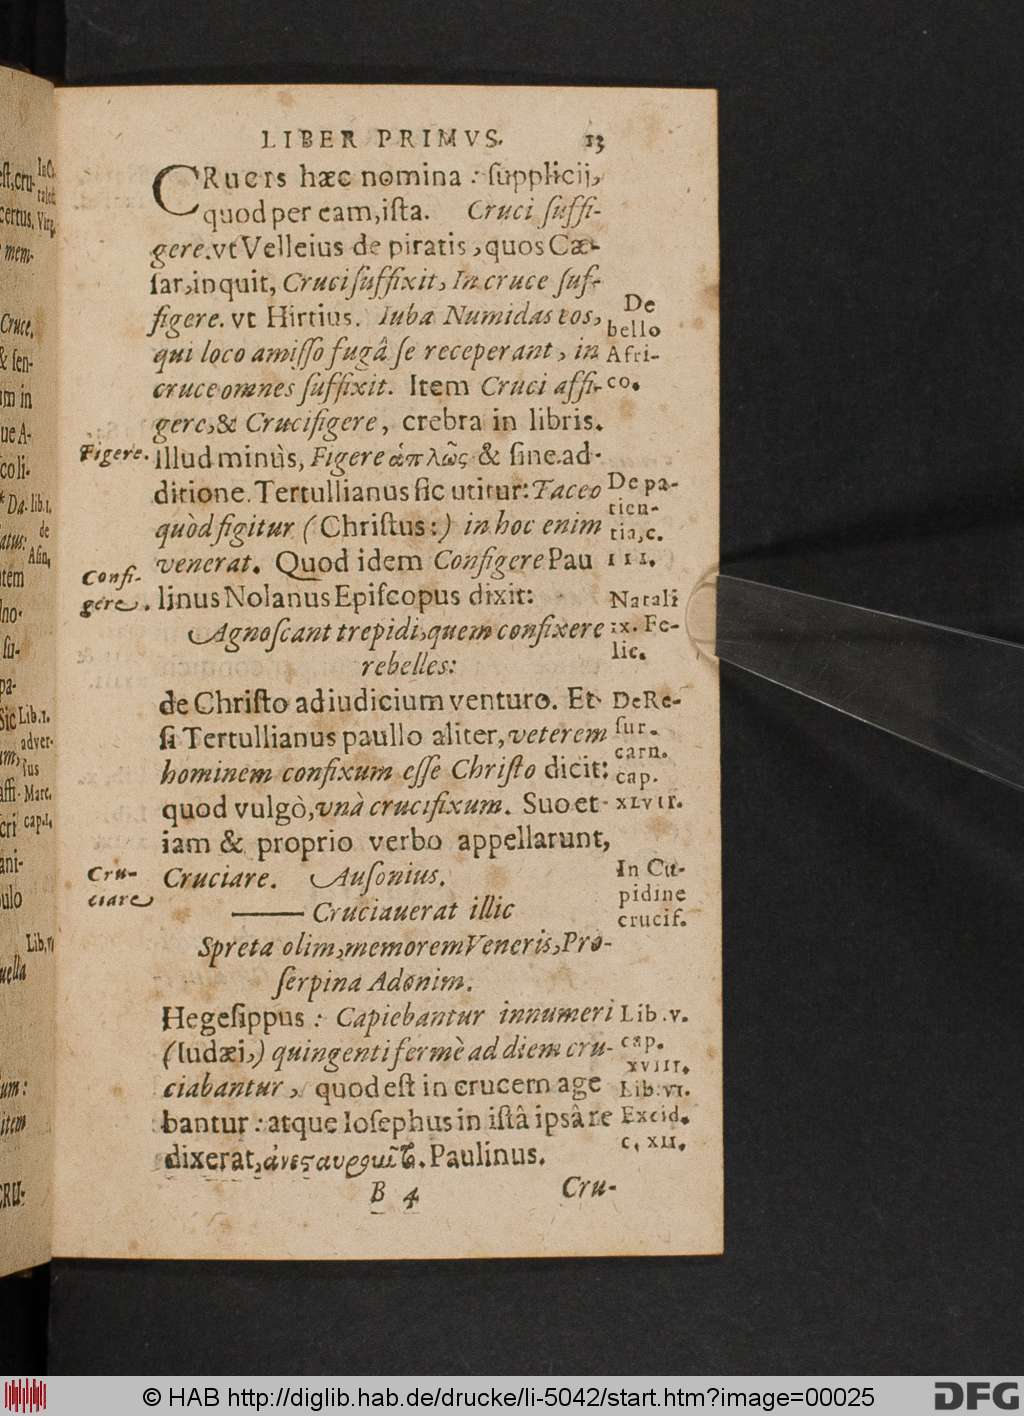 LIBER PRIMVS. 13
CRucis hæc nomina : ſupplicij,
quod per eam, iſta. Cruci ſuffi-
gere. vt Velleius de piratis, quos Cæ-
ſar, inquit, Cruci ſuffixit, In cruce ſuf-
figere. vt Hirtius. Iuba Numidas eos,
qui loco amiſſo fugâ ſe receperant, in
cruce omnes ſuffixit. Item Cruci affi-
gere, & Crucifigere, crebra in libris.
illud minùs, Figere ἁπλῶς & ſine ad-
ditione. Tertullianus ſic utitur: Taceo
quòd figitur (Chriſtus:) in hoc enim
venerat. Quod idem Configere Pau
linus Nolanus Epiſcopus dixit:
Agnoſcant trepidi, quem confixere
rebelles:
de Chriſto ad iudicium venturo. Et
ſi Tertullianus paullo aliter, veterem
hominem confixum eſſe Chriſto dicit:
quod vulgò, vnà crucifixum. Suo et-
iam & proprio verbo appellarunt,
Cruciare. Auſonius.
—— Cruciauerat illic
Spreta olim, memorem Veneris, Pro-
ſerpina Adonim.
Hegeſippus : Capiebantur innumeri
(Iudæi,) quingenti fermè ad diem cru-
ciabantur, quod eſt in crucem age
bantur : atque Ioſephus in iſtâ ipsâ re
dixerat, Paulinus.
B 4 Cru-
Figere.
Confi-
gere.
Cru-
ciare
De
bello
Afri-
co.
De pa-
tien-
tia, c.
III.
Natali
ix. Fe-
lic.
De Re-
ſur-
carn.
cap.
XLVII.
In Cu-
pidine
crucif.
Lib. v.
cap.
XVIII.
Lib. VI.
Excid.
c. XII.
Lib. 1.
adver-
ſus
Marc.
cap. 1.
© HAB http://diglib.hab.de/drucke/li-5042/start.htm?image=00025
DFG